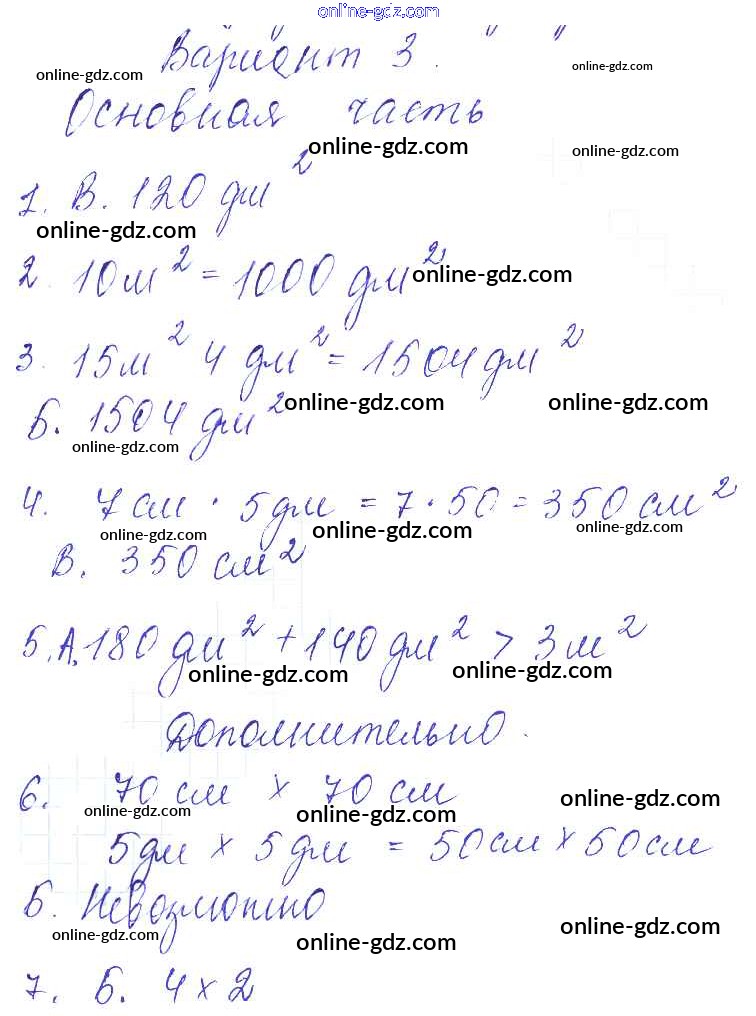 online-gdz.com
Вариант 3. " "
online-gdz.com online-gdz.com
Основная часть
online-gdz.com online-gdz.com
1. В. 120 дм²
online-gdz.com
2. 10 м² = 1000 дм²
online-gdz.com
3. 15 м² 4 дм² = 1504 дм²
online-gdz.com online-gdz.com
Б. 1504 дм²
online-gdz.com
4. 7 см · 5 дм = 7 · 50 = 350 см²
online-gdz.com online-gdz.com online-gdz.com
В. 350 см²
5. А. 180 дм² + 140 дм² > 3 м²
online-gdz.com online-gdz.com
Дополнительно.
6. 70 см х 70 см
online-gdz.com online-gdz.com online-gdz.com
5 дм х 5 дм = 50 см х 50 см
Б. Невозможно
online-gdz.com online-gdz.com online-gdz.com
7. Б. 4 х 2